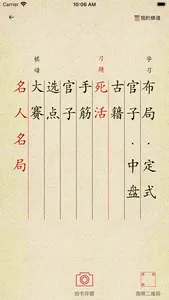 10:06 AM
我的棋谱
学习
布局·定式
官子·中盘
古籍
习题
死活
手筋
官子
选点
棋谱
大赛
名人名局
拍书答题
围棋二维码